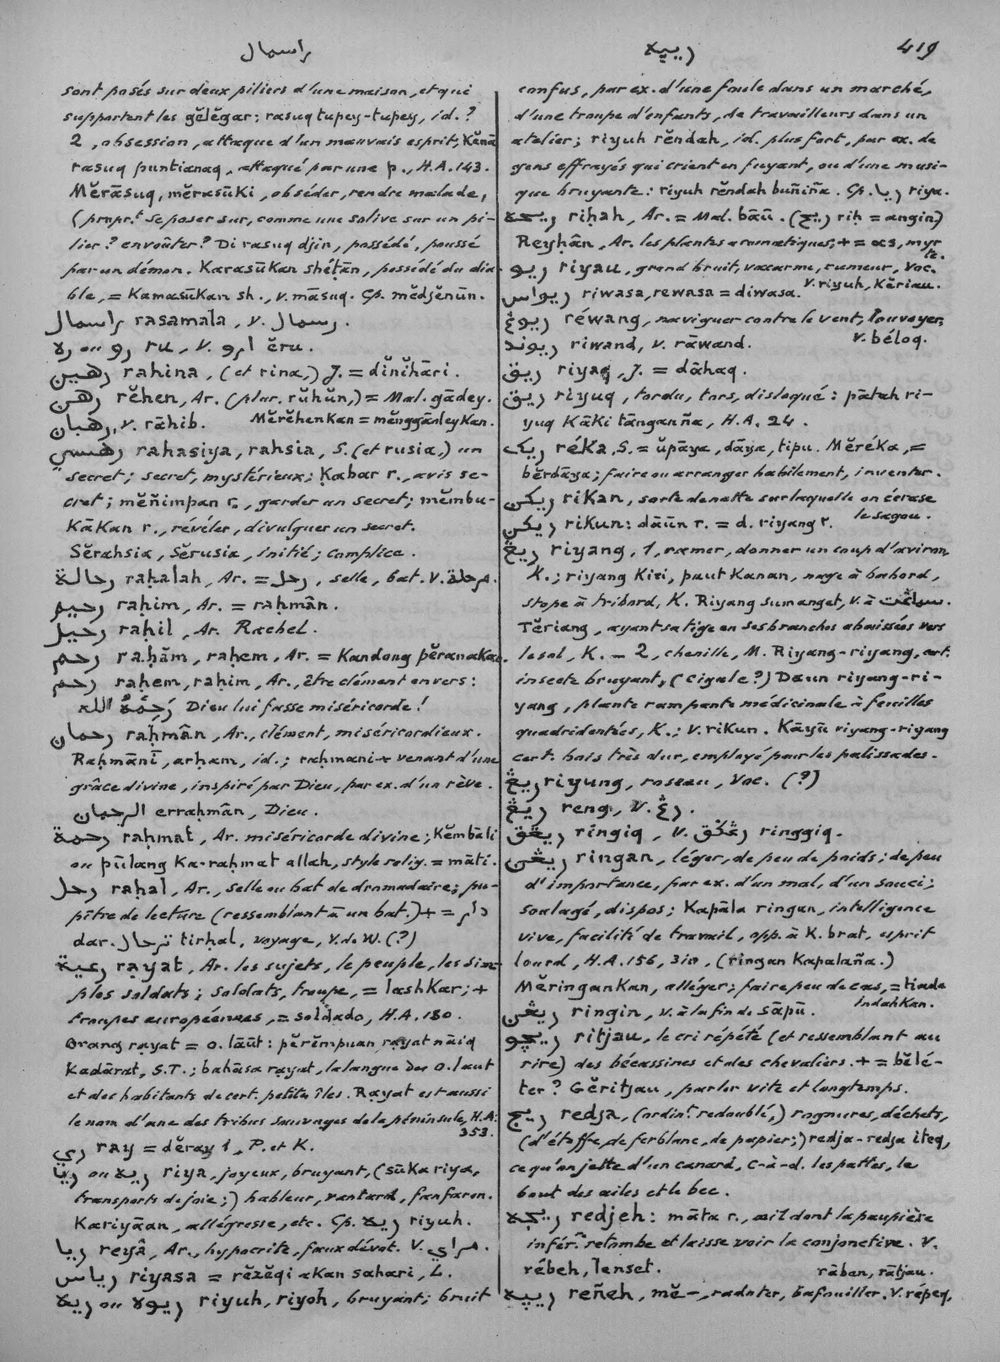 راسمال
ريپه 419
sont posés sur deux piliers d'une maison, et qui
supportent les gělěgar; rasuq tupey-tupey, id.?
2, obsession, attaque d'un mauvais esprit; Kěnā
rasuq puntianaq, attaqué par une p., H.A. 143.
Měrāsuq, měrasūki, obséder, rendre malade,
(propr.t se poser sur, comme une solive sur un pi-
lier? envoûter? Di rasuq djin, possédé, poussé
par un démon. Karasūkan shéṭān, possédé du dia-
ble, = Kamasūkan sh., v. māsuq. Cp. mědjěnūn.
راسمال rasamala, v. رسمال.
رو ou ره ru, v. ارو ěru.
رهين rahina, (et rina,) J. = dīnīhāri.
رهن rěhen, Ar. (plur. rŭhŭn,) = Mal. gādey.
رهبان, v. rāhib. Měrěhenkan = měnggānleykan.
رهسي rahasiya, rahsia, S. (et rusia,) un
secret; secret, mystérieux; Kabar r., avis se-
cret; měñimpan r., garder un secret; měmbu-
kākan r., révéler, divulguer un secret.
Sěrahsia, sěrusia, initié; complice.
رحالة raḥalah, Ar. = رحل, selle, bat. V. مرحلة.
رحيم raḥim, Ar. = raḥmān.
رحيل raḥil, Ar. Rachel.
رحم raḥām, raḥem, Ar. = Kandong pěranakan.
رحم raḥem, raḥim, Ar., être clément envers:
رَحِمَهُ الله Dieu lui fasse miséricorde!
رحمان raḥmān, Ar., clément, miséricordieux.
Raḥmānī, arḥam, id.; raḥmani + venant d'une
grâce divine, inspiré par Dieu, par ex. d'un rêve.
الرحمان erraḥmān, Dieu.
رحمة raḥmat, Ar. miséricorde divine; Kěmbāli
ou pūlang ka-raḥmat allah, style relig. = māti.
رحل raḥal, Ar., selle ou bat de dromadaire; pu-
pître de lecture (ressemblant à un bat.) + = دار
dar. ترحال tirhal, voyage, V. de W. (?)
رعية rayat, Ar. les sujets, le peuple, les sim-
ples soldats; soldats, troupe, = lashkar; +
troupes européennes, = soldado, H.A. 180.
Orang rayat = o. lāūt: pěrěmpuan rayat nāiq
kadārat, S.T.; bahāsa rayat, la langue des o. laut
et des habitants de cert. petites îles. Rayat est aussi
le nom d'une des tribus sauvages de la péninsule, H.A.
353.
ري ray = děray 1, P. et K.
ريا ou ريه riya, joyeux, bruyant, (sūka riya,
transports de joie;) hableur, vantard, fanfaron.
Kariyāan, allégresse, etc. Cp. ريه riyuh.
ريا reyâ, Ar., hypocrite, faux dévot. V. مراي.
رياس riyasa = rězěqi akan sahari, L.
ريه ou ريوه riyuh, riyoh, bruyant; bruit
confus, par ex. d'une foule dans un marché,
d'une troupe d'enfants, de travailleurs dans un
atelier; riyuh rěndah, id. plus fort, par ex. de
gens effrayés qui crient en fuyant, ou d'une musi-
que bruyante: riyuh rěndah buñiña. Cp. ريا riya.
ريحه riḥah, Ar. = Mal. bāū. (ريح riḥ = angin)
Reyḥān, Ar. les plantes aromatiques; + = as, myr
te.
ريو riyau, grand bruit, vacarme, rumeur, Voc.
v. riyuh, Kěriau.
ريواس riwasa, rewasa = diwasa.
ريوڠ réwang, naviguer contre le vent, louvoyer,
v. béloq.
ريوند riwand, v. rāwand.
ريق riyaq, J. = dāhaq.
ريق riyuq, tordu, tors, disloqué: pātah ri-
yuq Kāki tānganña, H.A. 24.
ريک réka, S. = ŭpāya, dāya, tipu. Měréka, =
běrdāya; faire ou arranger habilement, inventer.
ريكن rikan, sorte de natte sur laquelle on écrase
le sagou.
ريكن rikun: dāūn r. = d. riyang r.
ريڠ riyang, 1, ramer, donner un coup d'aviron,
K.; riyang kiri, paut kanan, nage à babord,
stope à tribord, K. Riyang sumanget, v. à سماڠت.
Těriang, ayant sa tige en ses branches abaissées vers
le sol, K. — 2, chenille, M. Riyang-riyang, cert.
insecte bruyant, (cigale?) Daun riyang-ri-
yang, plante rampante médicinale à feuilles
quadridentées, K.; v. rikun. Kāyū riyang-riyang
cert. bois très dur, employé pour les palissades.
ريڠ riyung, roseau, Voc. (?)
ريڠ reng, v. رڠ.
ريڠق ringiq, v. رڠݢق ringgiq.
ريڠن ringan, léger, de peu de poids; de peu
d'importance, par ex. d'un mal, d'un souci;
soulagé, dispos; Kapāla ringan, intelligence
vive, facilité de travail, opp. à K. brat, esprit
lourd, H.A. 156, 310, (ringan kapalaña.)
Měringankan, alléger; faire peu de cas, = tiada
indahkan.
ريڠن ringin, v. à la fin de sāpū.
ريچو ritjau, le cri répété (et ressemblant au
rire) des bécassines et des chevaliers. + = bělé-
ter? Gěritjau, parler vite et longtemps.
ريج redja, (ordin.t redoublé,) rognures, déchets,
(d'étoffe, de ferblanc, de papier;) redja-redja iteq,
ce qu'on jette d'un canard, c-à-d. les pattes, le
bout des ailes et le bec.
ريجه redjeh: māta r., œil dont la paupière
infér.re retombe et laisse voir la conjonctive. V.
rébeh, lenset. rāban, rātjau.
ريپه reñeh, mě—, radoter, bafouiller. V. répeq,